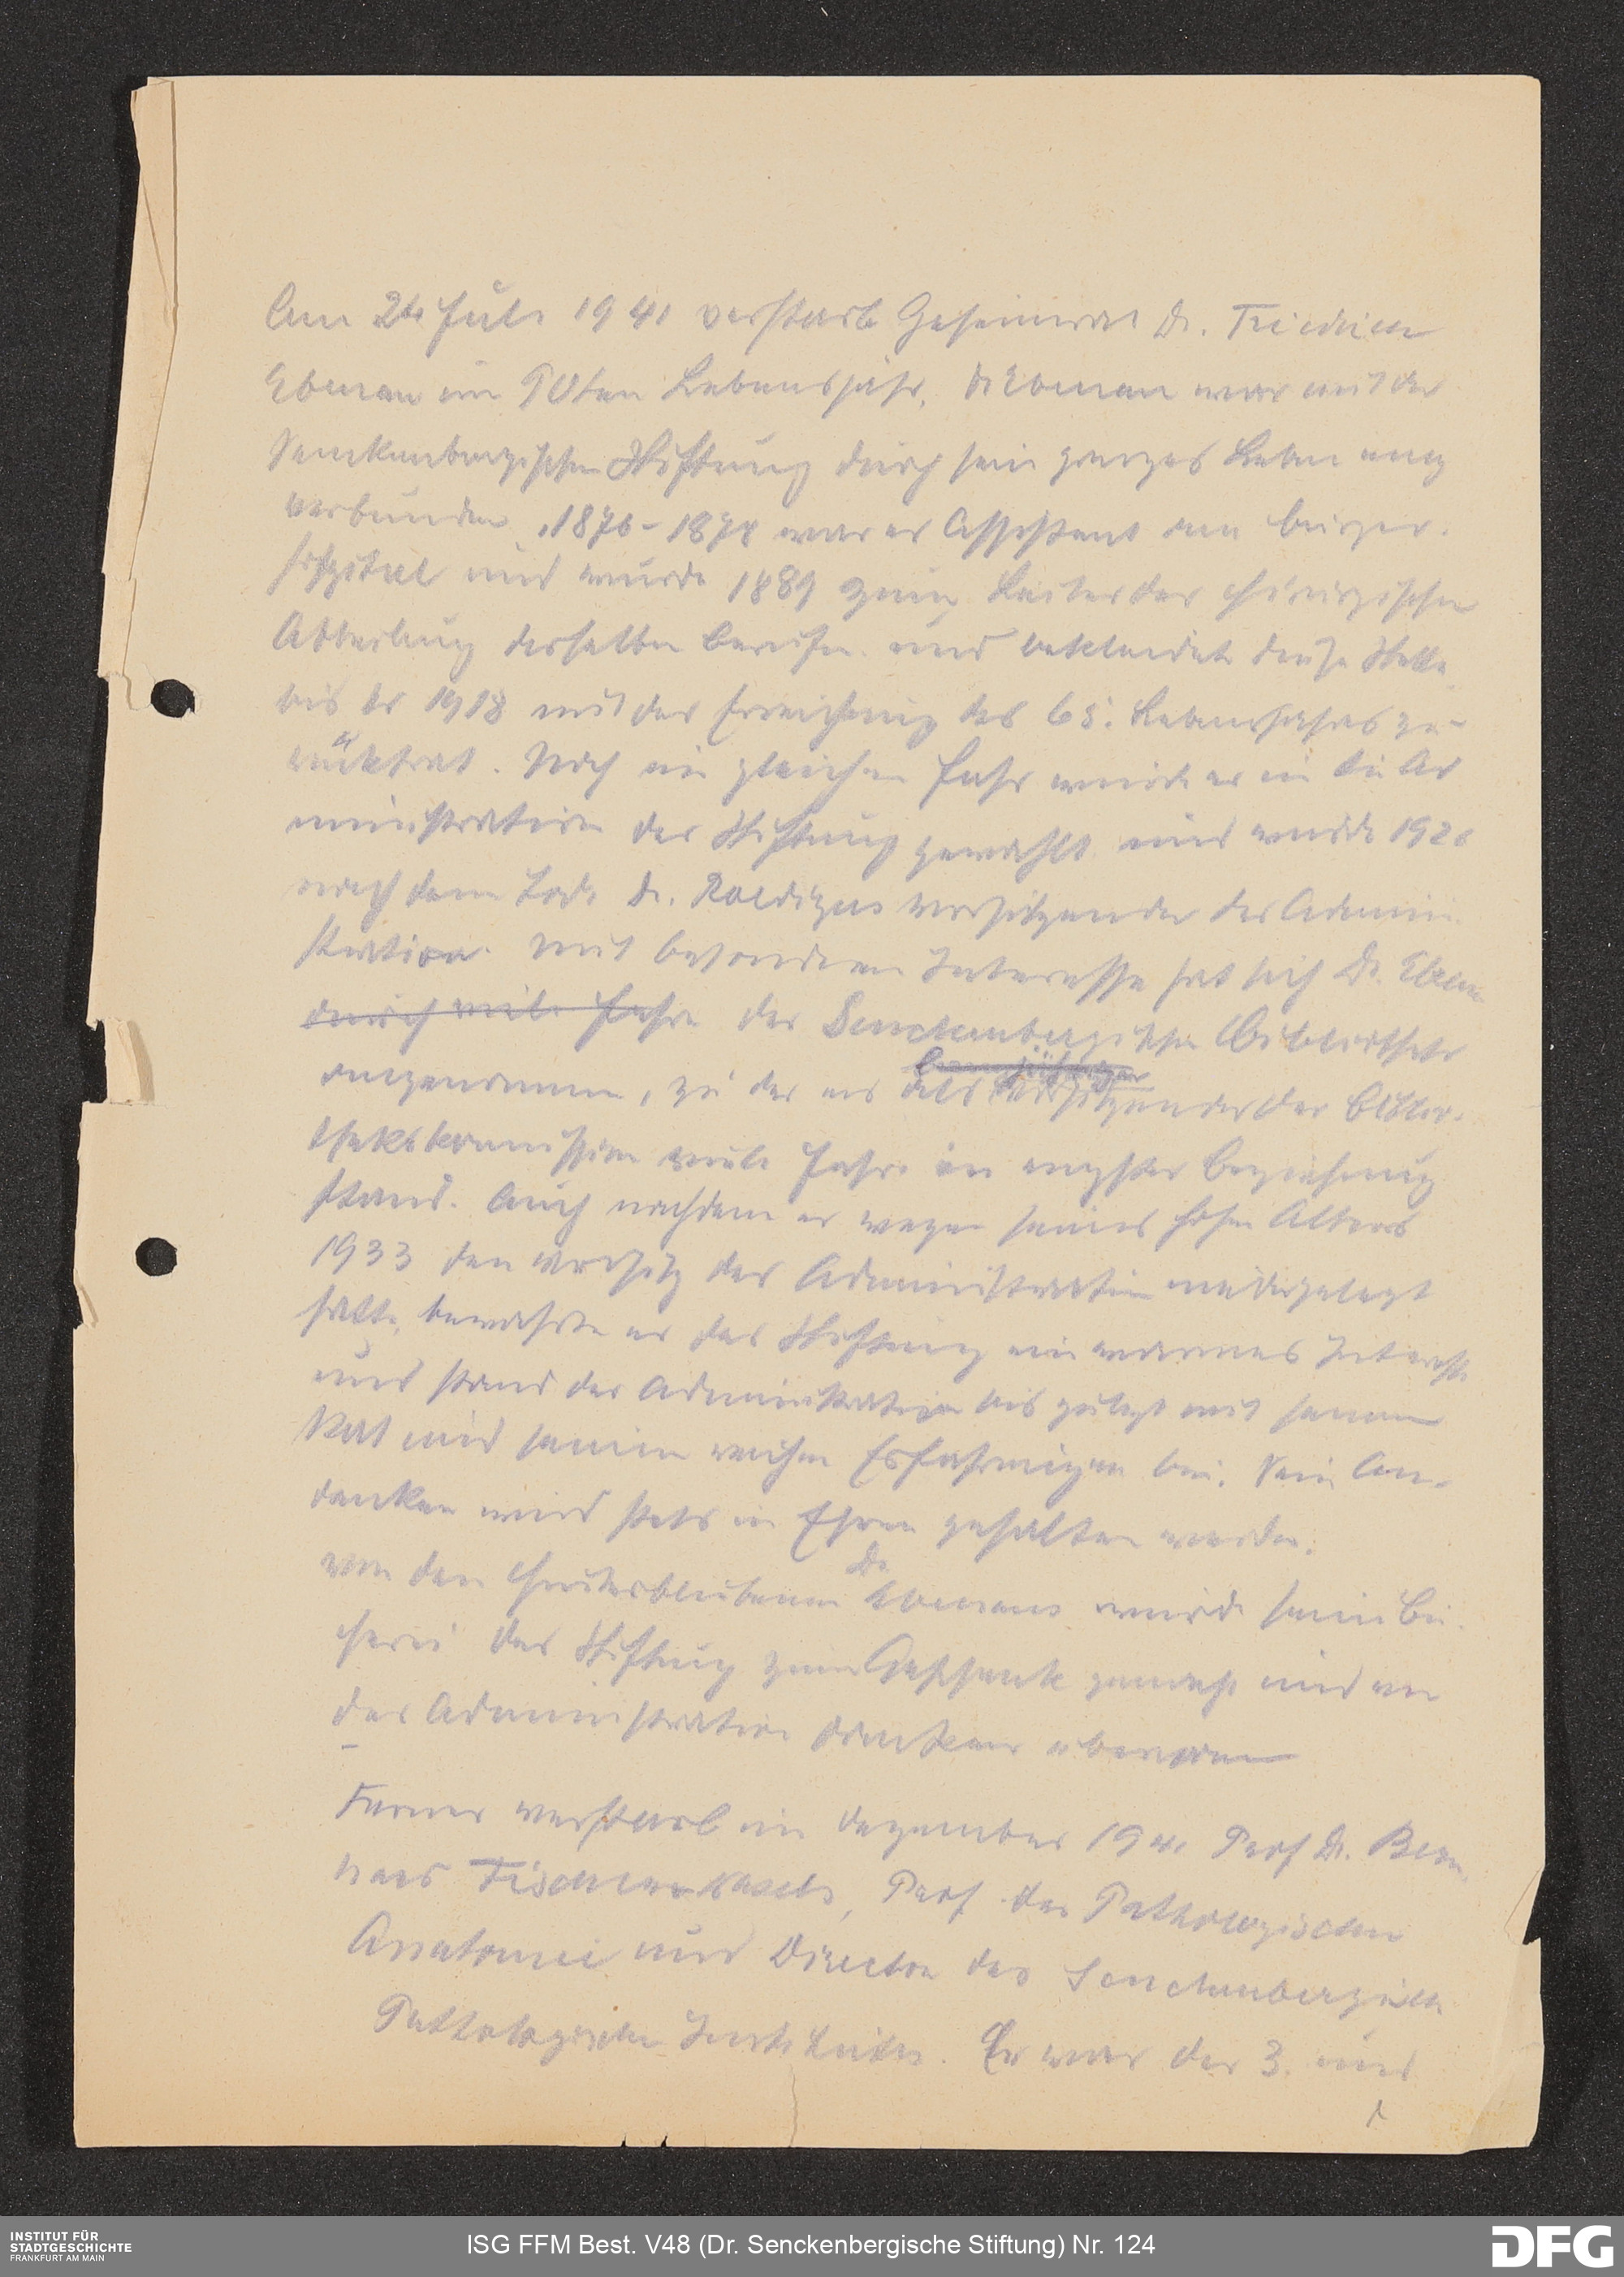 Am 24 Juli 1941 verstarb Geheimrat Dr. Friedrich
Ebenau im 90ten Lebensjahr. Dr Ebenau war mit der
Senckenbergischen Stiftung durch sein ganzes Leben eng
verbunden. 1876-1878 war er Assistent am Bürger-
hospital und wurde 1889 zum Leiter der chirurgischen
Abteilung desselben berufen und bekleidete diese Stelle
bis er 1918 mit der Erreichung des 65. Lebensjahres zu-
rücktrat. Noch im gleichen Jahr wurde er in die Ad
ministration der Stiftung gewählt und wurde 1926
nach dem Tode Dr. Roedigers Vorsitzender der Admini
stration. Mit besonderem Interesse hat sich Dr. Ebenau
durch viele Jahre der Senckenbergischen Bibliothek
langjähriger
angenommen, zu der er als Vorsitzender der Biblio-
thekskommission viele Jahre in engster Beziehung
stand. Auch nachdem er wegen seines hohen Alters
1933 den Vorsitz der Administration niedergelegt
hatte, bewahrte er der Stiftung ein warmes Interesse
und stand der Administration bis zuletzt mit seinem
Rat und seinen reichen Erfahrungen bei. Sein An-
denken wird stets in Ehren gehalten werden.
Von den Hinterbliebenen Dr Ebenaus wurde seine Bü-
cherei der Stiftung zum Geschenk gemacht und von
der Administration dankend übernommen
Ferner verstarb im Dezember 1941 Prof Dr. Bern
hard Fischer-Wasels, Prof der Pathologischen
Anatomie und Director des Senckenbergisch
Pathologischen Institutes. Er war der 3. und
INSTITUT FÜR
STADTGESCHICHTE
FRANKFURT AM MAIN
ISG FFM Best. V48 (Dr. Senckenbergische Stiftung) Nr. 124
DFG